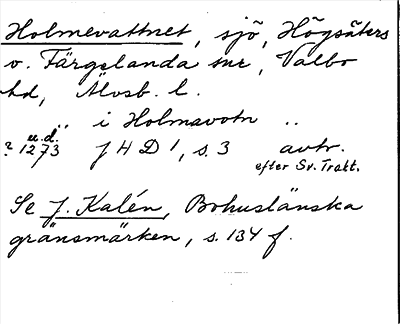 Holmevattnet, sjö, Högsäters
o. Färgelanda snr, Valbo
hd, Älvsb. l.
.. i Holmavotn ..
u.d.
? 1273 J 4 D 1, s. 3 avtr.
efter Sv. Trakt.
Se J. Kalén, Bohuslänska
gränsmärken, s. 134 f.